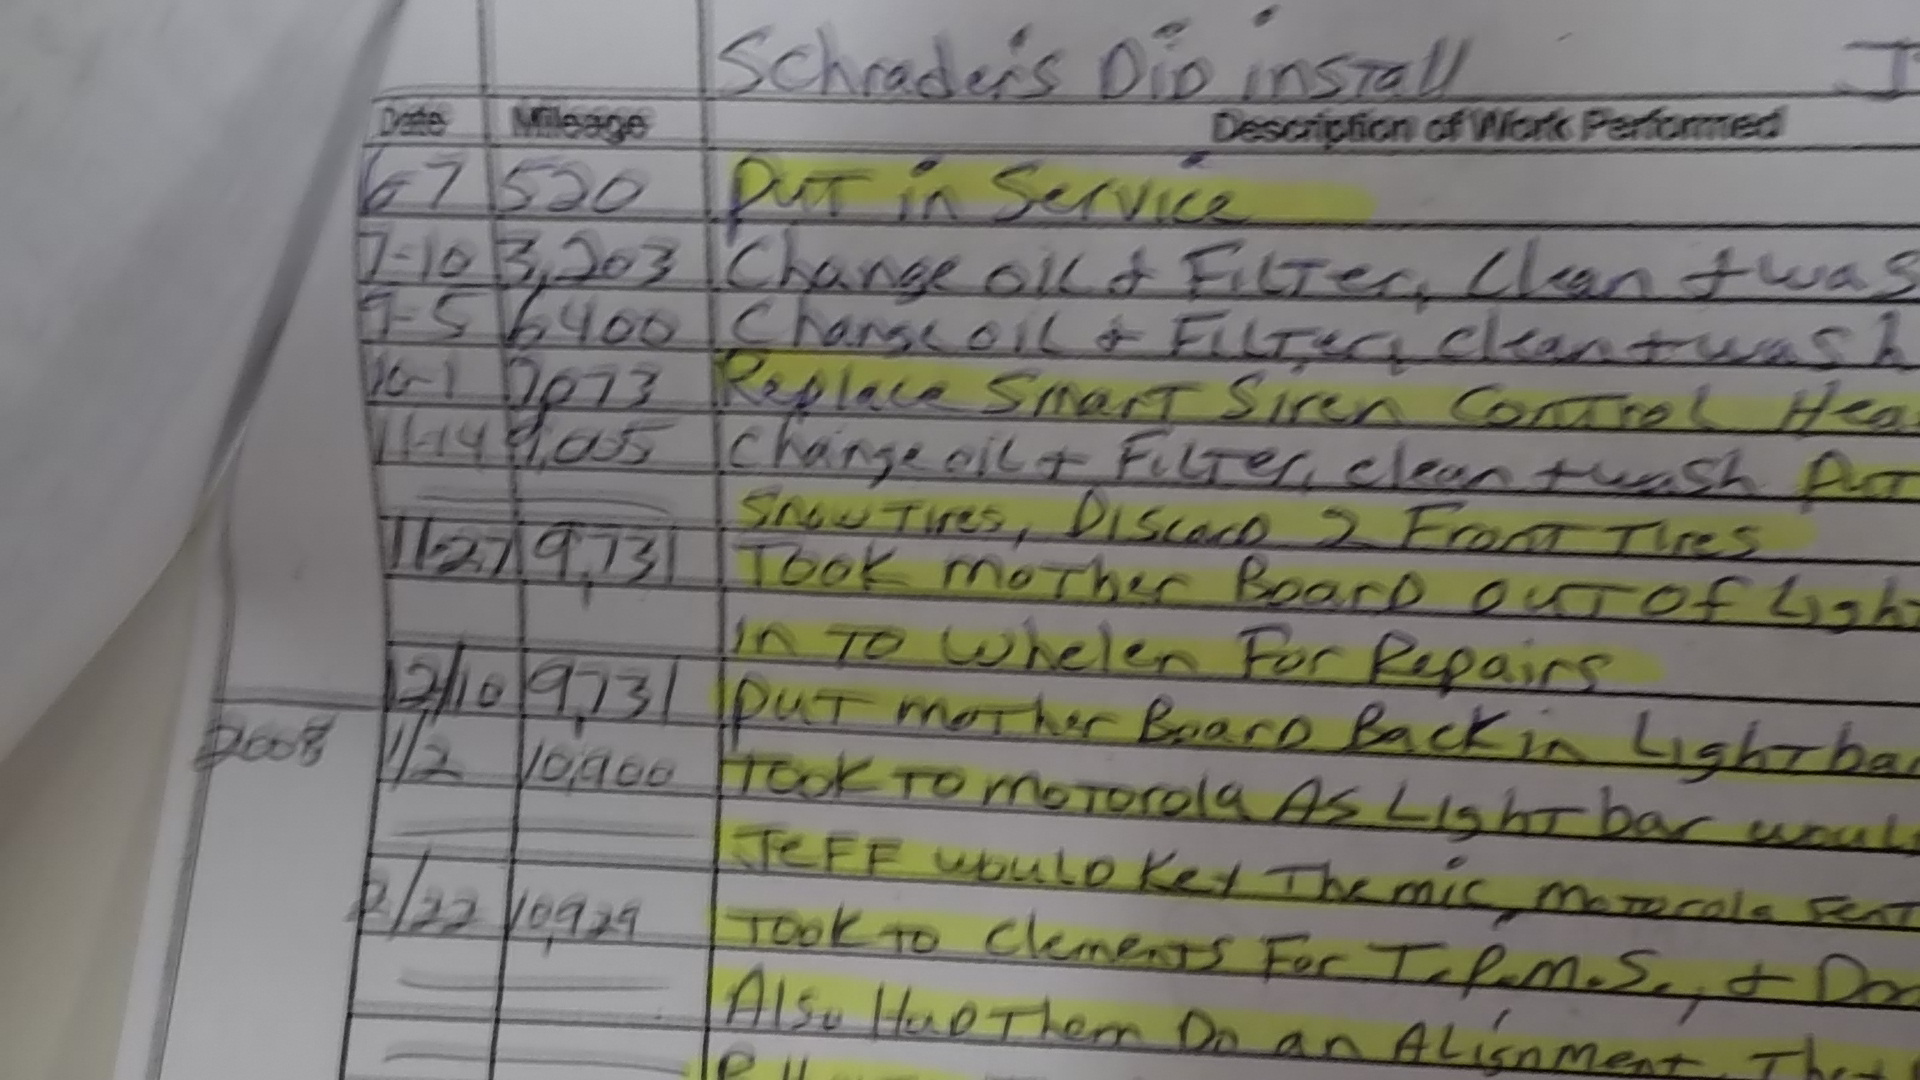 Schrader's Did install
Date Mileage Description of Work Performed
6-7 520 Put in Service
7-10 3,203 Change oil + Filter, Clean + was
9-5 6400 Change oil + Filter, clean + wash
10-1 7,073 Replace Smart Siren Control Hea
11-14 9,005 Change oil + Filter, clean + wash Put
Snow Tires, Discard 2 Front Tires
11-27 9,731 Took mother Board out of Light
in to Whelen For Repairs
12/10 9,731 Put mother Board Back in Lightbar
2008 1/2 10,900 Took to motorola As Lightbar would
Jeff would Key The mic, motorola sent
2/22 10,929 Took to Clements For T.P.M.S., + Doo
Also Had Them Do an Alignment, The